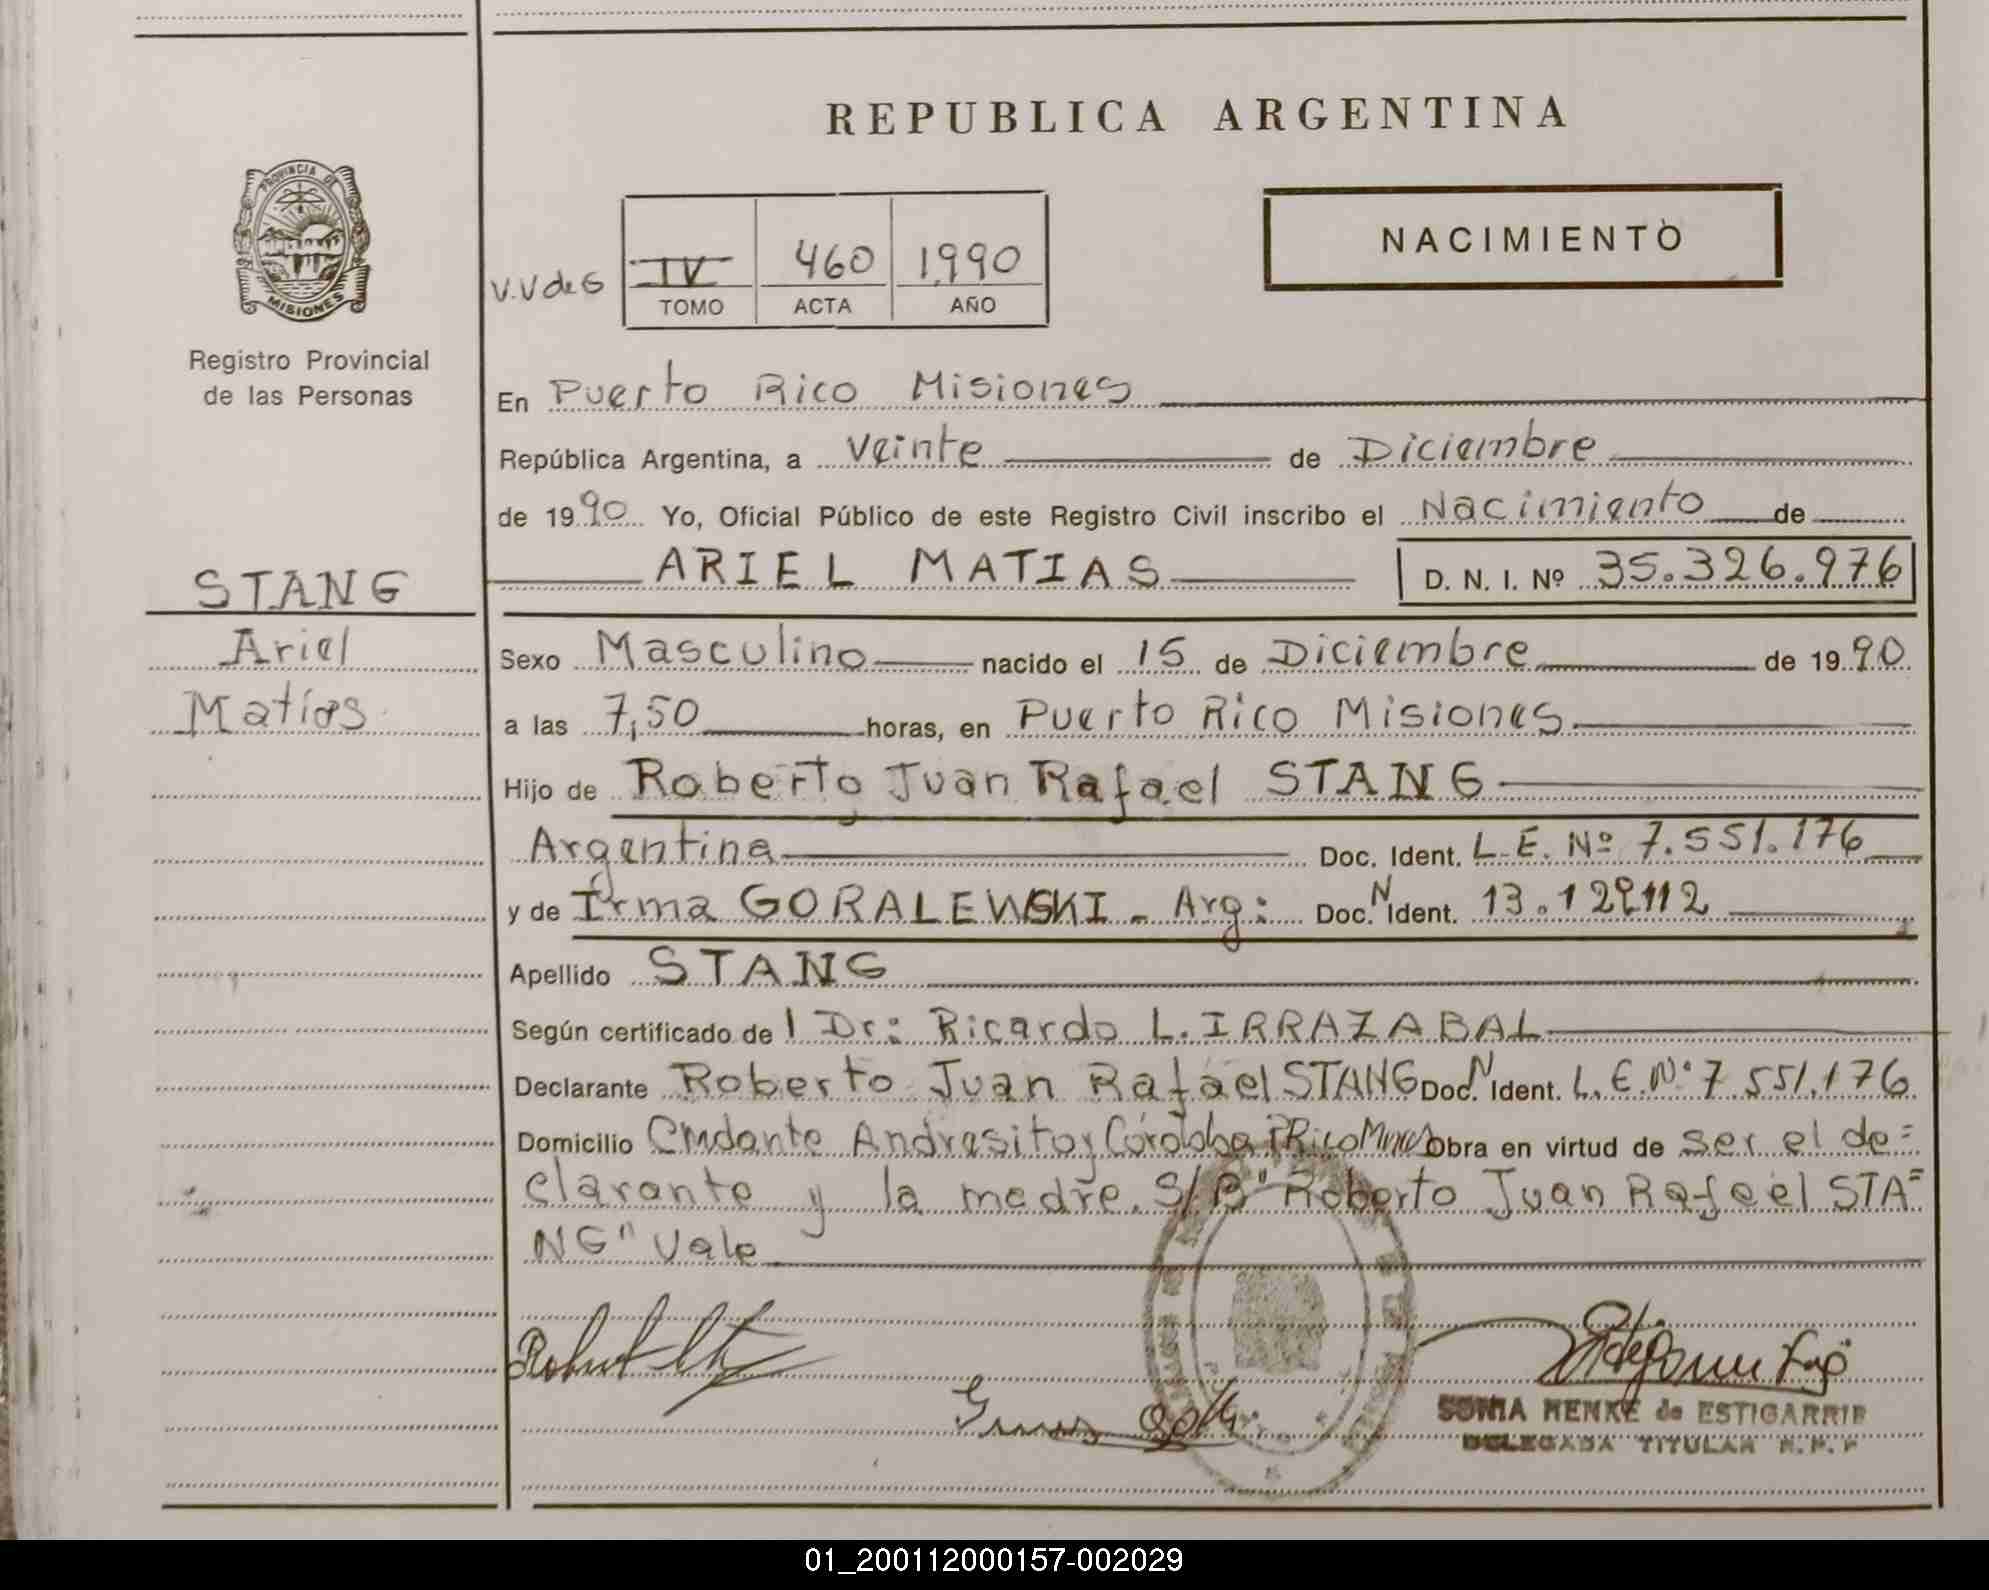 REPUBLICA ARGENTINA
PROVINCIA DE
MISIONES
Registro Provincial
de las Personas
NACIMIENTO
V.V de G
IV 460 1990
TOMO ACTA AÑO
En Puerto Rico Misiones
República Argentina, a Veinte de Diciembre
de 1990 Yo, Oficial Público de este Registro Civil inscribo el Nacimiento de
ARIEL MATIAS D. N. I. Nº 35.326.976
STANG
Ariel
Matías
Sexo Masculino nacido el 15 de Diciembre de 1990
a las 7,50 horas, en Puerto Rico Misiones
Hijo de Roberto Juan Rafael STANG
Argentina Doc. Ident. L.E. Nº 7.551.176
y de Irma GORALEWSKI - Arg: Doc. N Ident. 13.129112
Apellido STANG
Según certificado de l Dr: Ricardo L. IRRAZABAL
Declarante Roberto Juan Rafael STANG Doc. N Ident. L.E.Nº 7 551.176
Domicilio Cmdante Andresito y Córdoba P Rico Mnes Obra en virtud de ser el de=
clarante y la madre. S/B" Roberto Juan Rafael STA=
NG" Vale
SONIA HENKE de ESTIGARRIB
DELEGADA TITULAR R. P. P
01_200112000157-002029